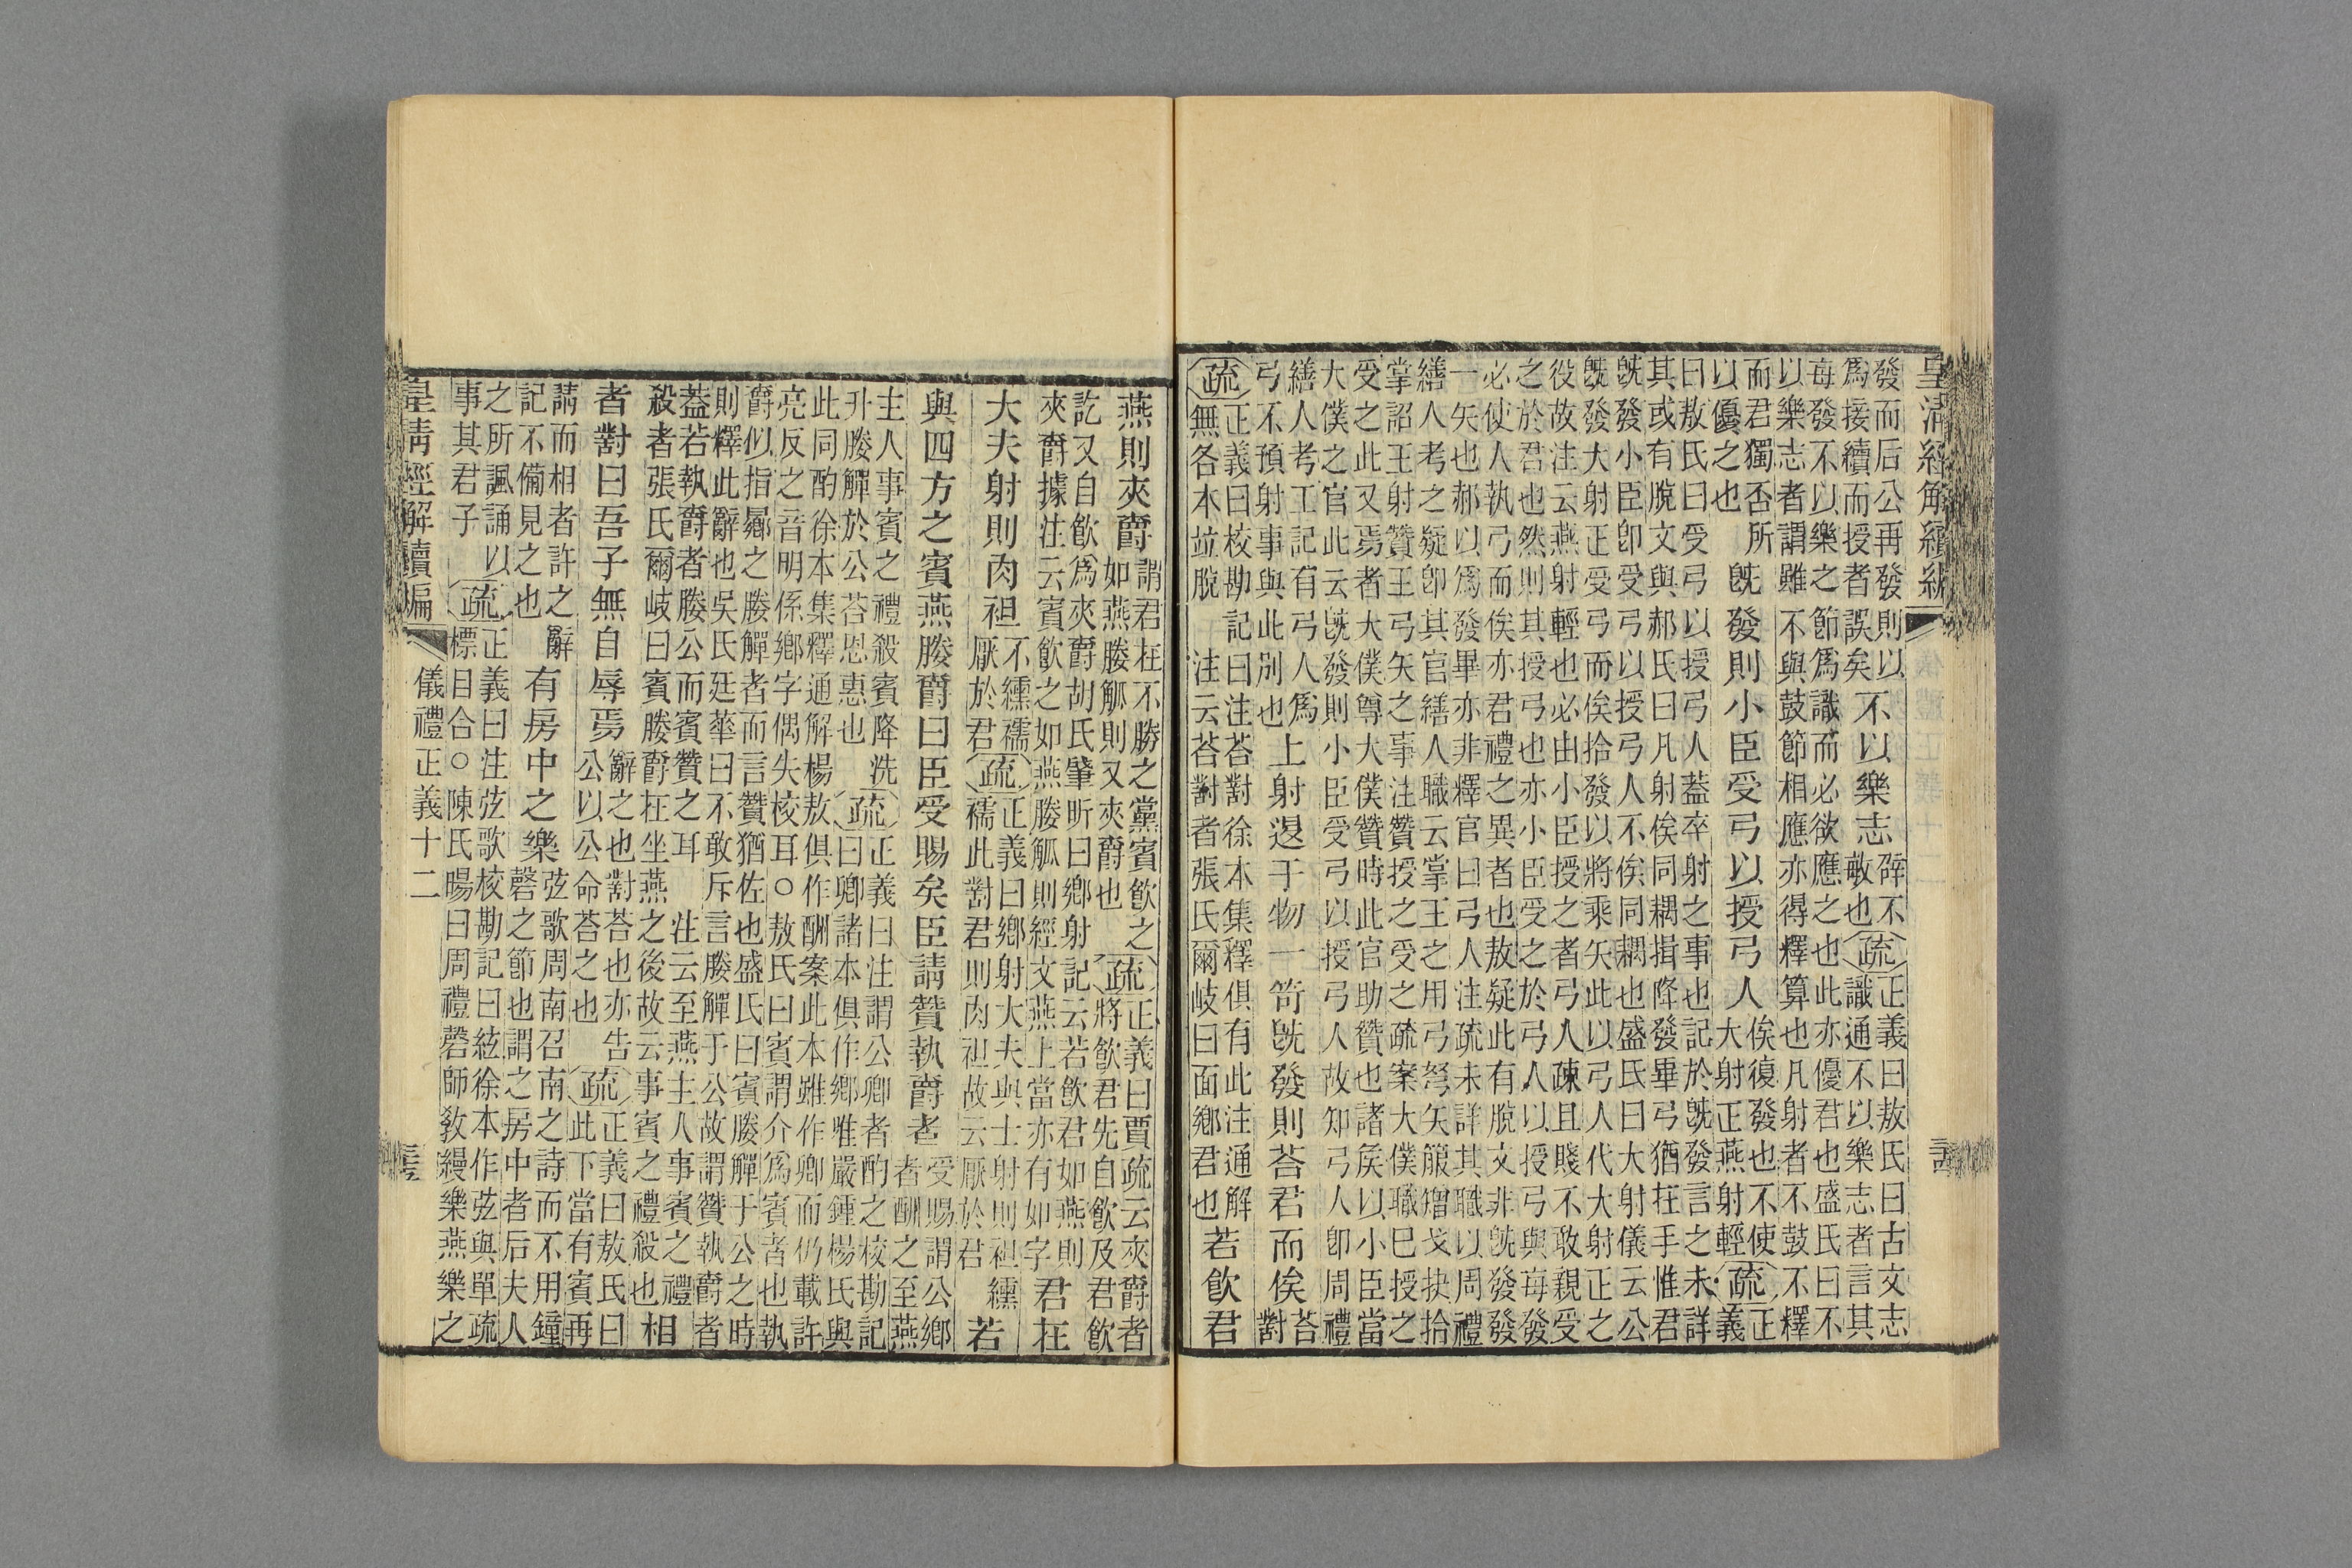 皇清經解續編
發而后公再發則以
爲接續而授者誤矣
不以樂志
辟不
敏也
疏
正義曰敖氏曰古文志
識通不以樂志者言其
每發不以樂之節爲識而必欲應之也此亦優君也盛氏曰不
以樂志者謂雖不與鼓節相應亦得釋算也凡射者不鼓不釋
而君獨否所
以優之也
既發則小臣受弓以授弓人
俟復發也不使
大射正燕射輕
疏
正
義
曰敖氏曰受弓以授弓人蓋卒射之事也記於既發言之未詳
其或有脫文與郝氏曰凡射俟同耦揖降發畢弓猶在手惟君
既發小臣卽受弓以授弓人不俟同耦也盛氏曰大射儀云公
既發大射正受弓而俟拾發以將乘矢此以弓人代大射正之
役故注云燕射輕也必由小臣授之者弓人疎且賤不敢親受
之於君也然則其授弓也亦小臣受之於弓人以授弓與每發
必使人執弓而俟亦君禮之異者也敖疑此有脫文非既發發
一矢也郝以爲發畢亦非釋官曰弓人注疏未詳其職以周禮
繕人考之疑卽其官繕人職云掌王之用弓弩矢箙矰弋抉拾
掌詔王射贊王弓矢之事注贊授之受之疏案大僕職已授之
受之此又焉者大僕尊大僕贊時此官助贊也諸侯以小臣當
大僕之官此云既發則小臣受弓以授弓人故知弓人卽周禮
繕人考工記有弓人爲
弓不預射事與此別也
上射退于物一笴既發則荅君而俟
荅
對
疏
正義曰校勘記曰注荅對徐本集釋俱有此注通解
無各本竝脫 注云荅對者張氏爾岐曰面鄉君也
若飲君
燕則夾爵
謂君在不勝之黨賓飲之
如燕媵觚則又夾爵也
疏
正義曰賈疏云夾爵者
將飲君先自飲及君飲
訖又自飲爲夾爵胡氏肇昕曰鄉射記云若飲君如燕則
夾爵據注云賓飲之如燕媵觚則經文燕上當亦有如字
君在
大夫射則肉袒
不纁襦
厭於君
疏
正義曰鄉射大夫與士射則袒纁
襦此對君則肉袒故云厭於君
若
與四方之賓燕媵爵曰臣受賜矣臣請贊執爵者
受賜謂公鄉
者酬之至燕
主人事賓之禮殺賓降洗
升媵觶於公荅恩惠也
疏
正義曰注謂公卿者酌之校勘記
曰卿諸本俱作鄉唯嚴鍾楊氏與
此同酌徐本集釋通解楊敖俱作酬案此本雖作卿而仍載許
亮反之音明係鄉字偶失校耳○敖氏曰賓謂介爲賓者也執
爵似指羃之媵觶者而言贊猶佐也盛氏曰賓媵觶于公之時
則釋此辭也吳氏廷華曰不敢斥言媵觶于公故謂贊執爵者
蓋若執爵者媵公而賓贊之耳 注云至燕主人事賓之禮
殺者張氏爾岐曰賓媵爵在坐燕之後故云事賓之禮殺也
相
者對曰吾子無自辱焉
辭之也對荅也亦告
公以公命荅之也
疏
正義曰敖氏曰
此下當有賓再
請而相者許之辭
記不備見之也
有房中之樂
弦歌周南召南之詩而不用鐘
磬之節也謂之房中者后夫人
之所諷誦以
事其君子
疏
正義曰注弦歌校勘記曰絃徐本作弦與單疏
標目合○陳氏暘曰周禮磬師敎縵樂燕樂之
皇清經解續編 儀禮正義十二